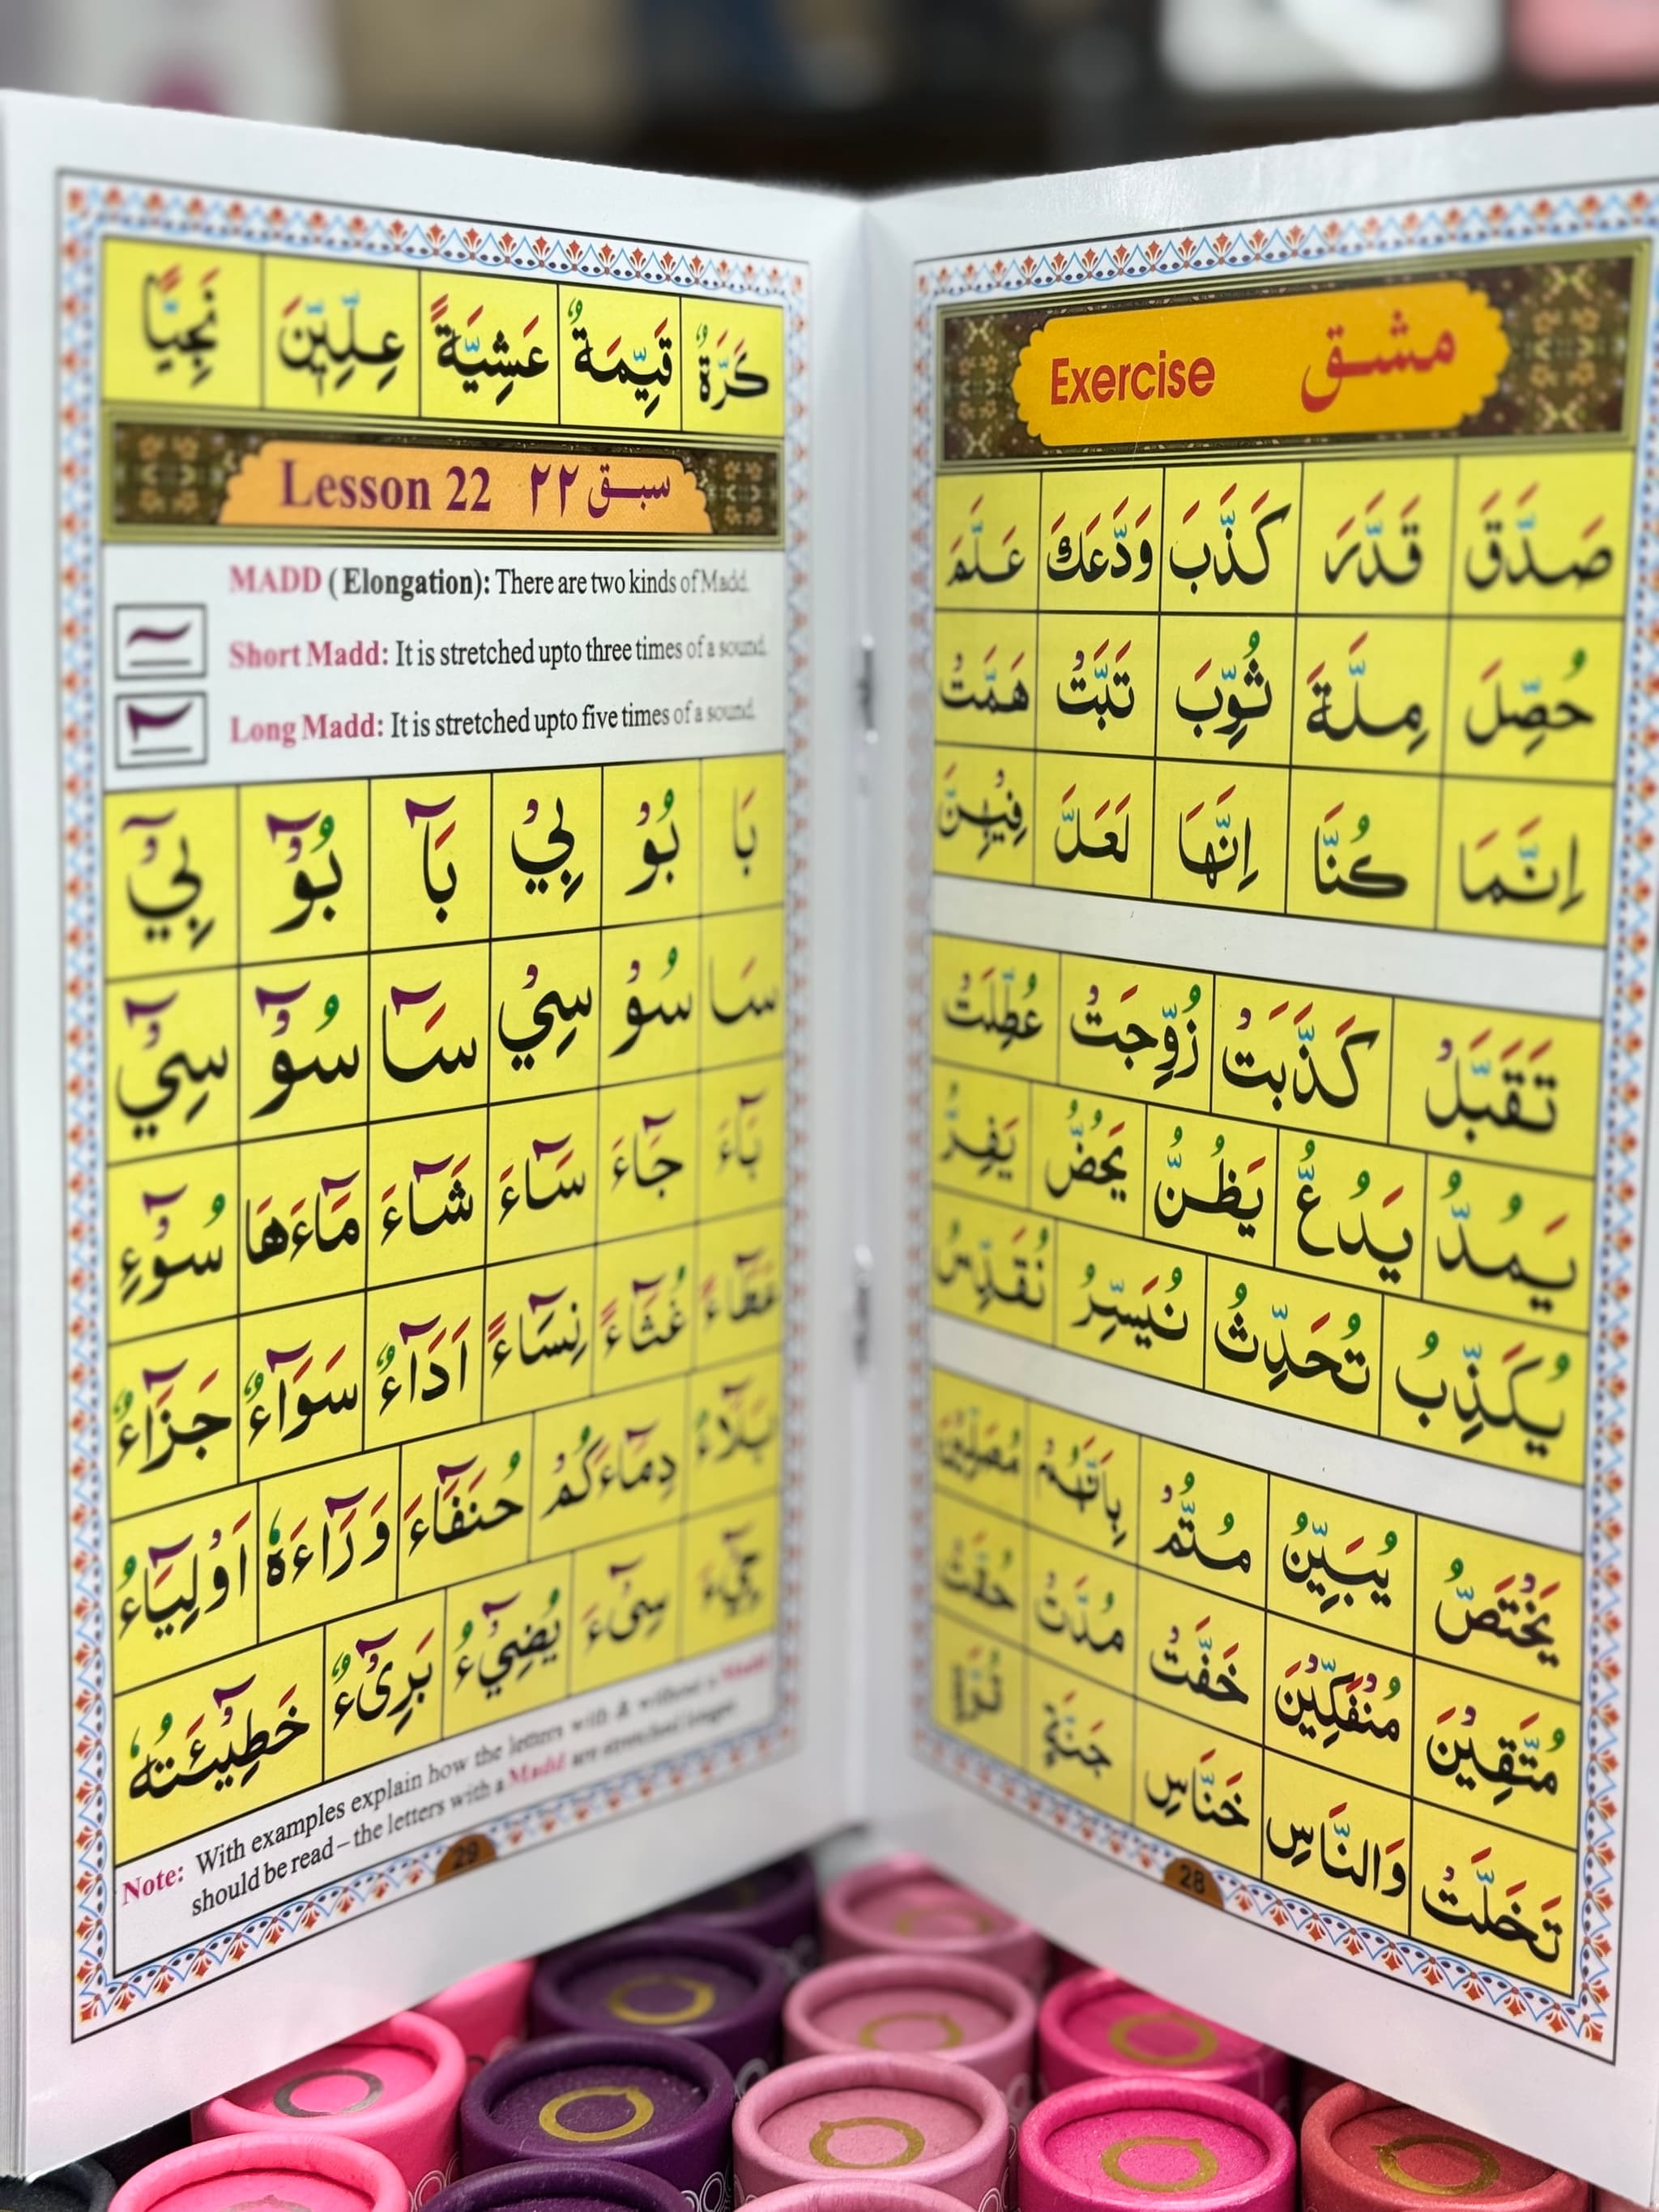 مشق Exercise
صَدَّقَ قَدَّرَ كَذَّبَ وَدَّعَكَ عَلَّمَ
حُصِّلَ مِلَّةَ ثُوِّبَ تَبَّتْ هَمَّتْ
اِنَّمَا كُنَّا اِنَّهَا لَعَلَّ فِيْهِنَّ
تَقَبَّلْ كَذَّبَتْ زُوِّجَتْ عُطِّلَتْ
يَمُدُّ يَدُعُّ يَظُنُّ يَحُضُّ يَفِرُّ
يُكَذِّبُ تُحَدِّثُ نُيَسِّرُ نُقَدِّسُ
يَخْتَصُّ يُبَيِّنُ مُتُّمْ بِاَنَّهُمْ
مُتَّقِيْنَ مُنْفَكِّيْنَ خَفَّتْ مُدَّتْ حُقَّتْ
تَخَلَّتْ وَالنَّاسِ خَنَّاسِ جَنَّةٍ
28
كَرَّةٌ قَيِّمَةٌ عَشِيَّةً عِلِّيِّيْنَ نَجِيًّا
سبق ٢٢ Lesson 22
MADD (Elongation): There are two kinds of Madd.
Short Madd: It is stretched upto three times of a sound.
Long Madd: It is stretched upto five times of a sound.
بَا بُوْ بِيْ بَآ بُوْٓ بِيْٓ
سَا سُوْ سِيْ سَآ سُوْٓ سِيْٓ
بَآءَ جَآءَ سَآءَ شَآءَ مَآءَهَا سُوْٓءِ
عَطَآءً غُثَآءً نِسَآءً اَدَآءٌ سَوَآءٌ جَزَآءٌ
بَلَآءٌ دِمَآءَكُمْ حُنَفَآءَ وَرَآءَهٗ اَوْلِيَآءُ
سِیْٓءَ يُضِيْٓءُ بَرِیْٓءٌ خَطِيْٓـَٔتُهٗ
Note: With examples explain how the letters with & without a Madd
should be read – the letters with a Madd are stretched longer.
29